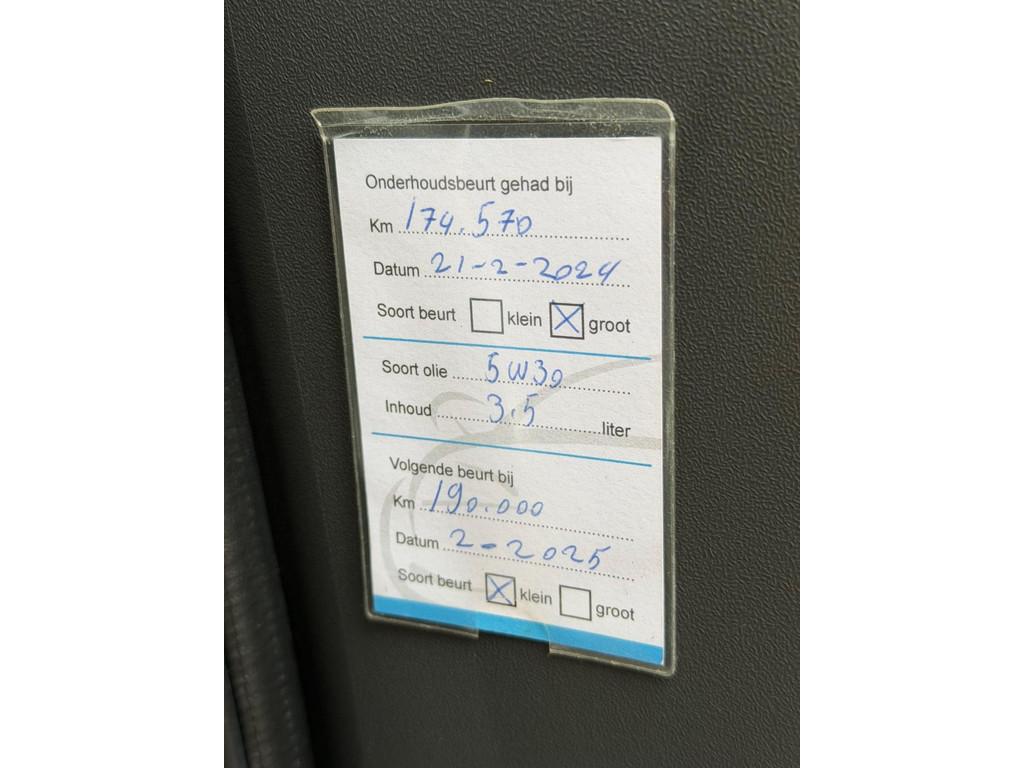 Onderhoudsbeurt gehad bij
Km 174.570
Datum 21-2-2024
Soort beurt klein groot
Soort olie 5W30
Inhoud 3.5 liter
Volgende beurt bij
Km 190.000
Datum 2-2025
Soort beurt klein groot